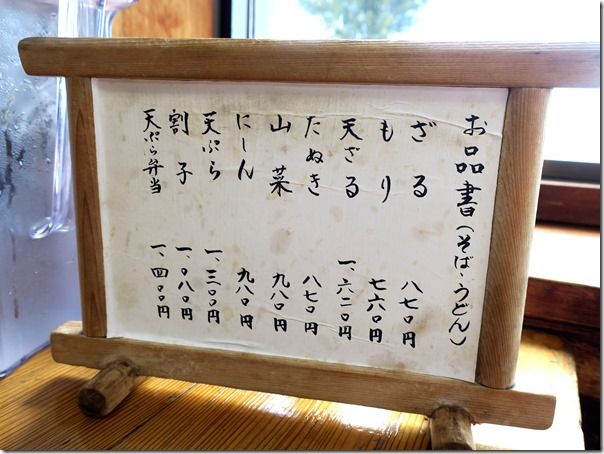 お品書(そば、うどん)
ざる 八七〇円
もり 七六〇円
天ざる 一、六二〇円
たぬき 八七〇円
山菜 九八〇円
にしん 九八〇円
天ぷら 一、三〇〇円
割子 一、〇八〇円
天ぷら弁当 一、四〇〇円